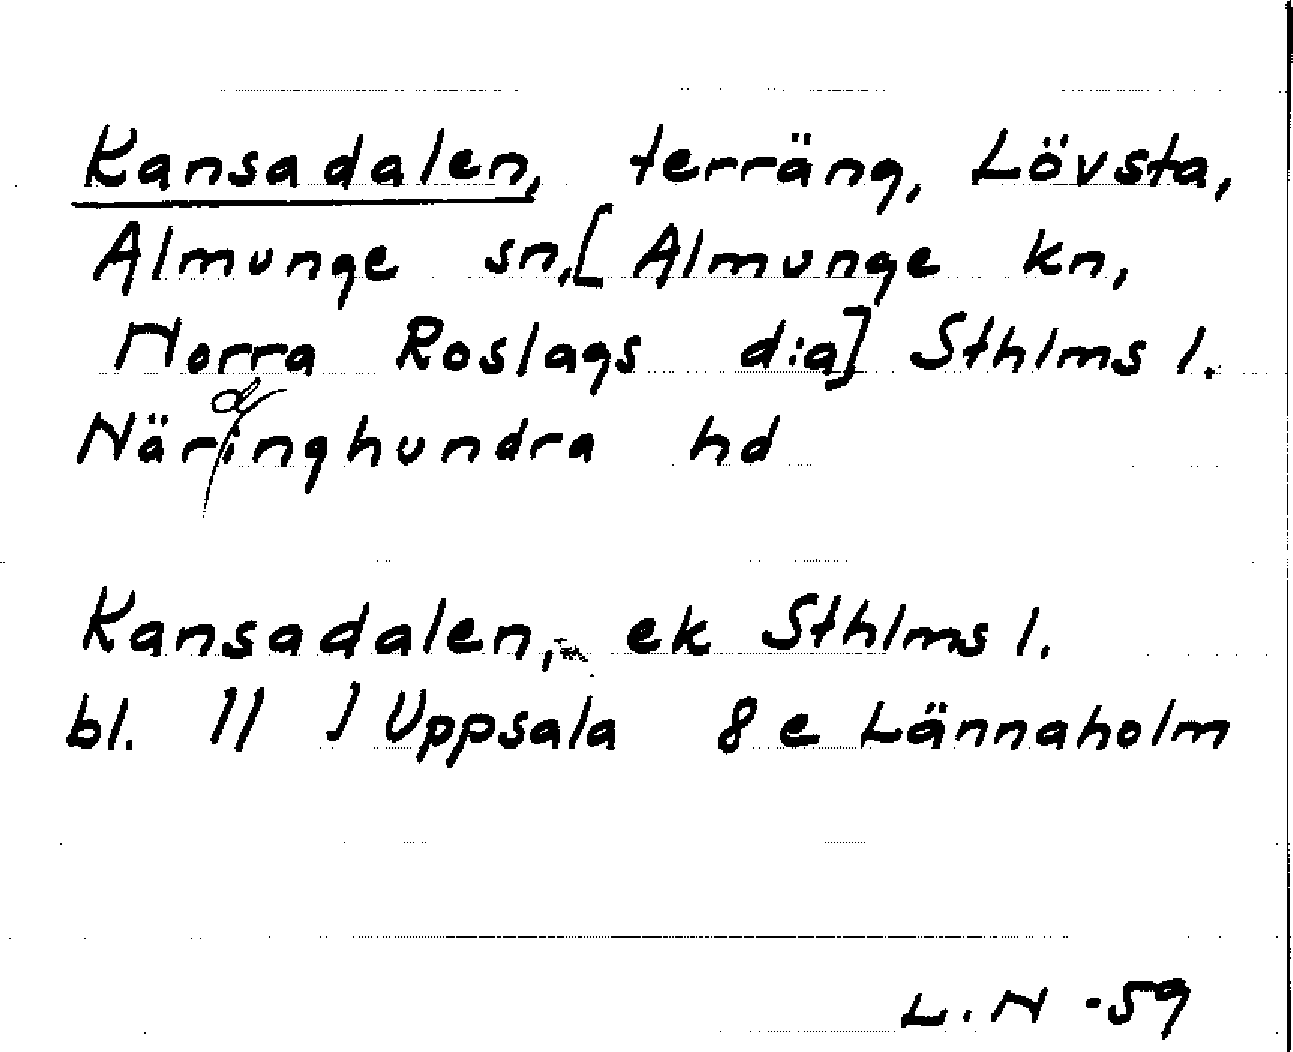 Kansadalen, terräng, Lövsta,
Almunge sn, [Almunge kn,
Norra Roslags d:a] Sthlms l.
Näringhundra hd
Kansadalen, ek Sthlms l.
bl. 11 J Uppsala 8 e Lännaholm
L.N -59